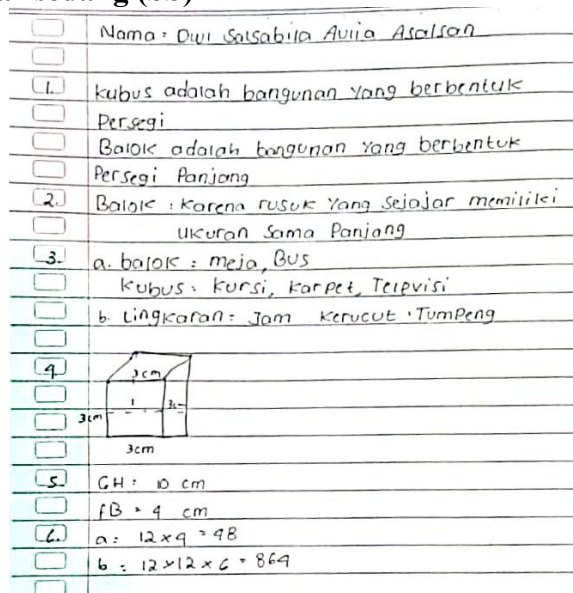 Nama: Dwi Salsabila Aulia Asalsan
1. kubus adalah bangunan yang berbentuk
Persegi
Balok adalah bangunan yang berbentuk
Persegi Panjang
2. Balok : Karena rusuk yang sejajar memiliki
ukuran sama Panjang
3. a. balok : meja, Bus
kubus : kursi, karpet, Televisi
b. Lingkaran : Jam kerucut : Tumpeng
4
3cm
3cm
3cm
5. GH : 10 cm
fB = 4 cm
6. a : 12 x 4 = 48
b : 12 x 12 x 6 = 864